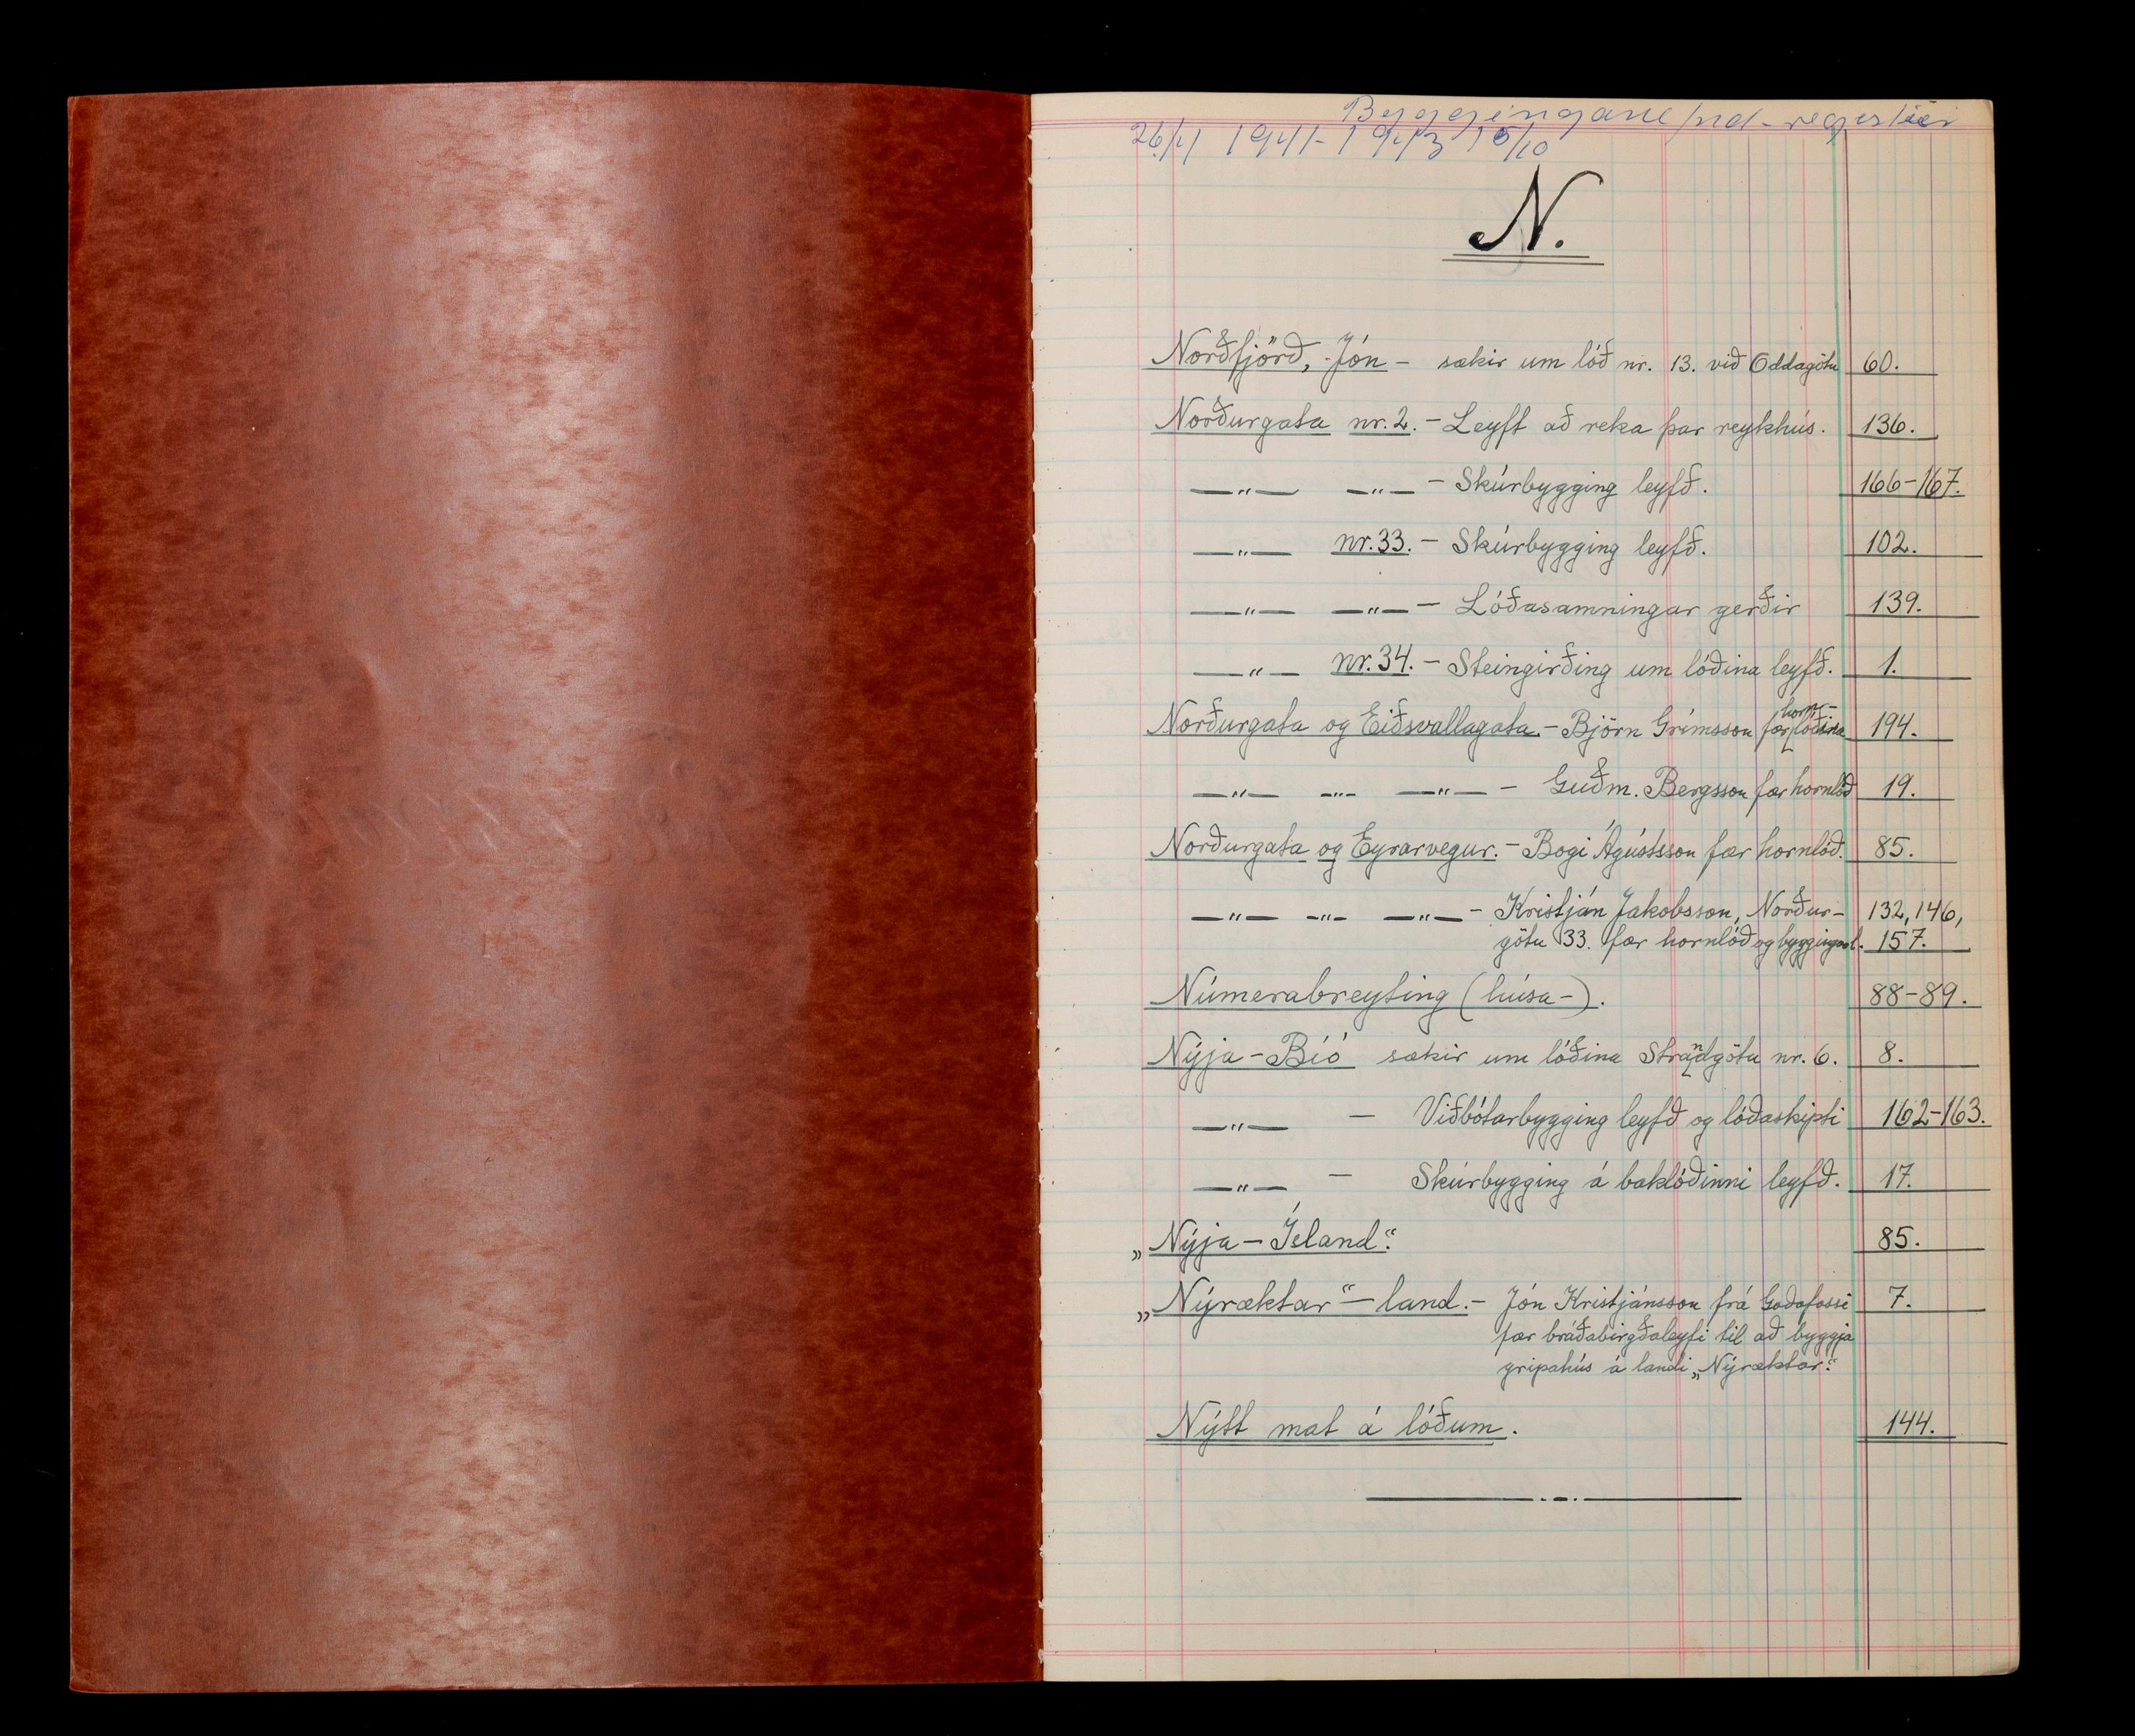 Byggingane/nd-registur
26/4 1941-1943 15/10
N.
Norðfjörð, Jón – sækir um lóð nr. 13. við Oddagötu 60.
Norðurgata nr. 2. – Leyft að reka þar reykhús. 136.
—"— —"— – Skúrbygging leyfð. 166-167.
—"— nr. 33. – Skúrbygging leyfð. 102.
—"— —"— – Lóðasamningar gerðir 139.
—"— nr. 34. – Steingirðing um lóðina leyfð. 1.
Norðurgata og Eiðsvallagata. – Björn Grímsson fær horn-lóðina 194.
—"— —"— —"— – Guðm. Bergsson fær hornlóð 19.
Norðurgata og Eyrarvegur. – Bogi Ágústsson fær hornlóð. 85.
—"— —"— —"— – Kristján Jakobsson, Norður- 132, 146,
götu 33. fær hornlóð og byggingarl. 157.
Númerabreyting (húsa-). 88-89.
Nýja-Bíó sækir um lóðina Strandgötu nr. 6. 8.
—"— – Viðbótarbygging leyfð og lóðaskipti 162-163.
—"— – Skúrbygging á baklóðinni leyfð. 17.
„Nýja-Ísland“. 85.
„Nýræktar“-land. – Jón Kristjánsson frá Goðafossi 7.
fær bráðabirgðaleyfi til að byggja
gripahús á landi „Nýræktar“.
Nýtt mat á lóðum. 144.